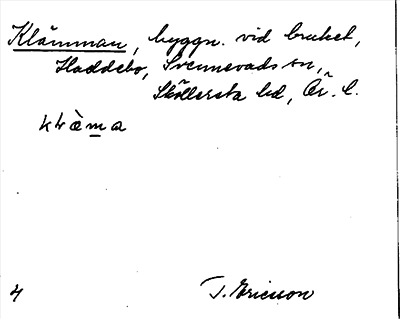 Klämman, byggn. vid bruket,
Haddebo, Svennevads sn,
Sköllersta hd, Ör. l.
klràma
4 T. Ericsson